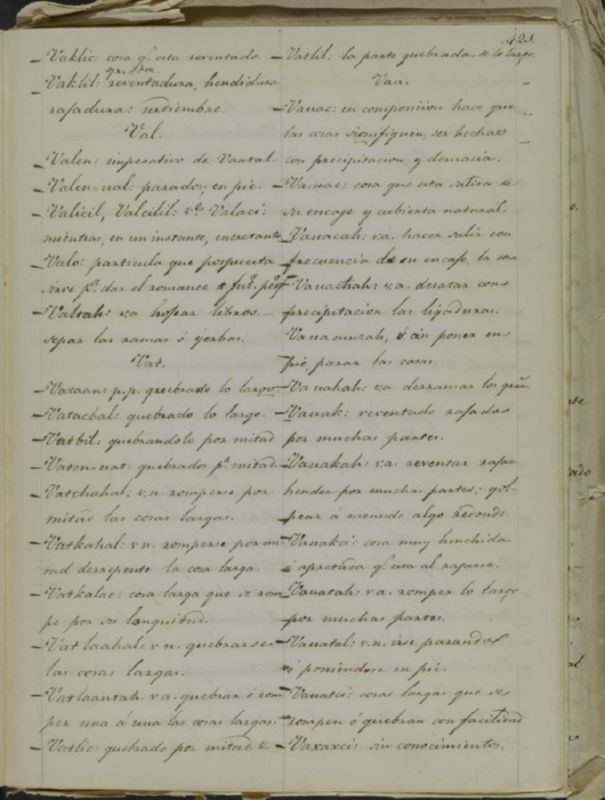 421.
Vaklic: cosa q.e esta reventada.
gr.eta
Vaklil: reventadura, hendidura
rafadura: urdiembre.
Val.
Valen: imperativo de Vaatal.
Valen-ual: parador, en pie.
Valicil, Valcilil: v.e Valaci:
mientras, en un instante, en retanto
Valo: particula que pospuesta
sirve p.a dar el romance
Valtah: v.a hojear libros.
separ las ramas ó yerbas.
Vat.
Vataan: p.p. quebrado lo largo.
Vatacbal: quebrado lo largo.
Vatbil: quebrandolo por mitad
Vaten-uat: quebrados p.r mitad.
Vatchahal: v.n. romperse por
mitad las cosas largas.
Vatkahal: v.n. romperse por mi-
tad derrepente la cosa larga.
Vatkalac: cosa larga que se rom
pe por su longuitud.
Vatlaahal: v.n. quebrarse
las cosas largas.
Vatlaantah v.a. quebrar ó rom
per una á una las cosas largas.
Vatlic: quebrado por mitad &
Vatlil: la parte quebrada de lo largo.
Vau.
Vauac: en composicion hace que
las cosas signifiquen, ser hechas
con precipitacion y demacia.
Vacuac: cosa que esta salida de
su encaje y cubierta natural.
Vauacah: v.a. hacer salir con
frecuencia de su encaje, la cosa
Vauachah: v.a. desatar con
precipitacion las ligaduras.
ó an poner en
pie, parar las cosas.
Vauahah: v.a. derramar los
Vauak: reventado rafados
por muchas partes.
Vauakah: v.a. reventar rafar
hender por muchas partes; gol-
pear á menudo algo redondo.
Vauakci: cosa muy henchida
ó apretada q.e esta al rajarse.
Vauatah: v.a. romper lo largo
por muchas partes.
Vauatal: v.n. irse parando
ó poniendose en pie.
Vauatci: cosas largas que se
rompen ó quebran con facilidad
Vaxaxci: sin conocimientos.